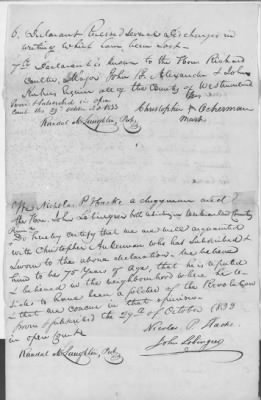 6. Declarant Received several Discharges in
writing which have been lost.
7th Declarant is known to the Honr Richard
Coulter, Major John B. Alexander & John
Esquire all of the County of Westmoreland
Sworn & subscribed in open
Court the 29th October AD 1833
Christopher X Ackerman
mark
Randal McLaughlin, Proty
We Nicholas P. Hacke a clergyman and
the Honr. John Lobingier both residing in Westmoreland County
Do hereby certify that we are well acquainted
with Christopher Ackerman who has subscribed &
sworn to the above declaration. We believe
him to be 75 years of age, that he is reputed
& believed in the neighbourhood where he
to have been a soldier of the Revolution
& that we concur in that opinion
Sworn & subscribed the 29th of October 1833
in open court
Nicolas P. Hacke
Randal McLaughlin, Prot
John Lobingier